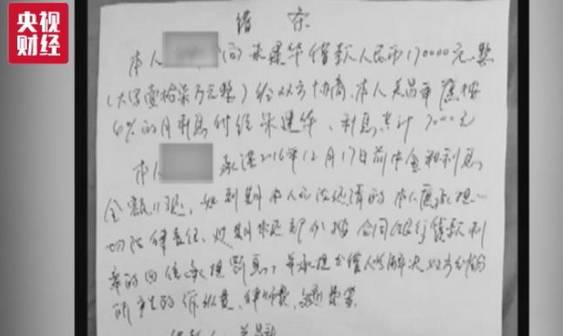 央视财经
借 条
本人 向朱建华借款人民币170000元整
(大写壹拾柒万元整)经双方协商,本人 愿按
6%的月利息付给朱建华,利息共计7000元
本人 承诺2016年12月17日前本金和利息
全额归还,如到期本人无法还清的本人愿承担一
切法律责任,过期未还部分按合同银行贷款利
率的四倍承担罚息,并承担出借人为解决对方纠纷
所产生的诉讼费、律师费、